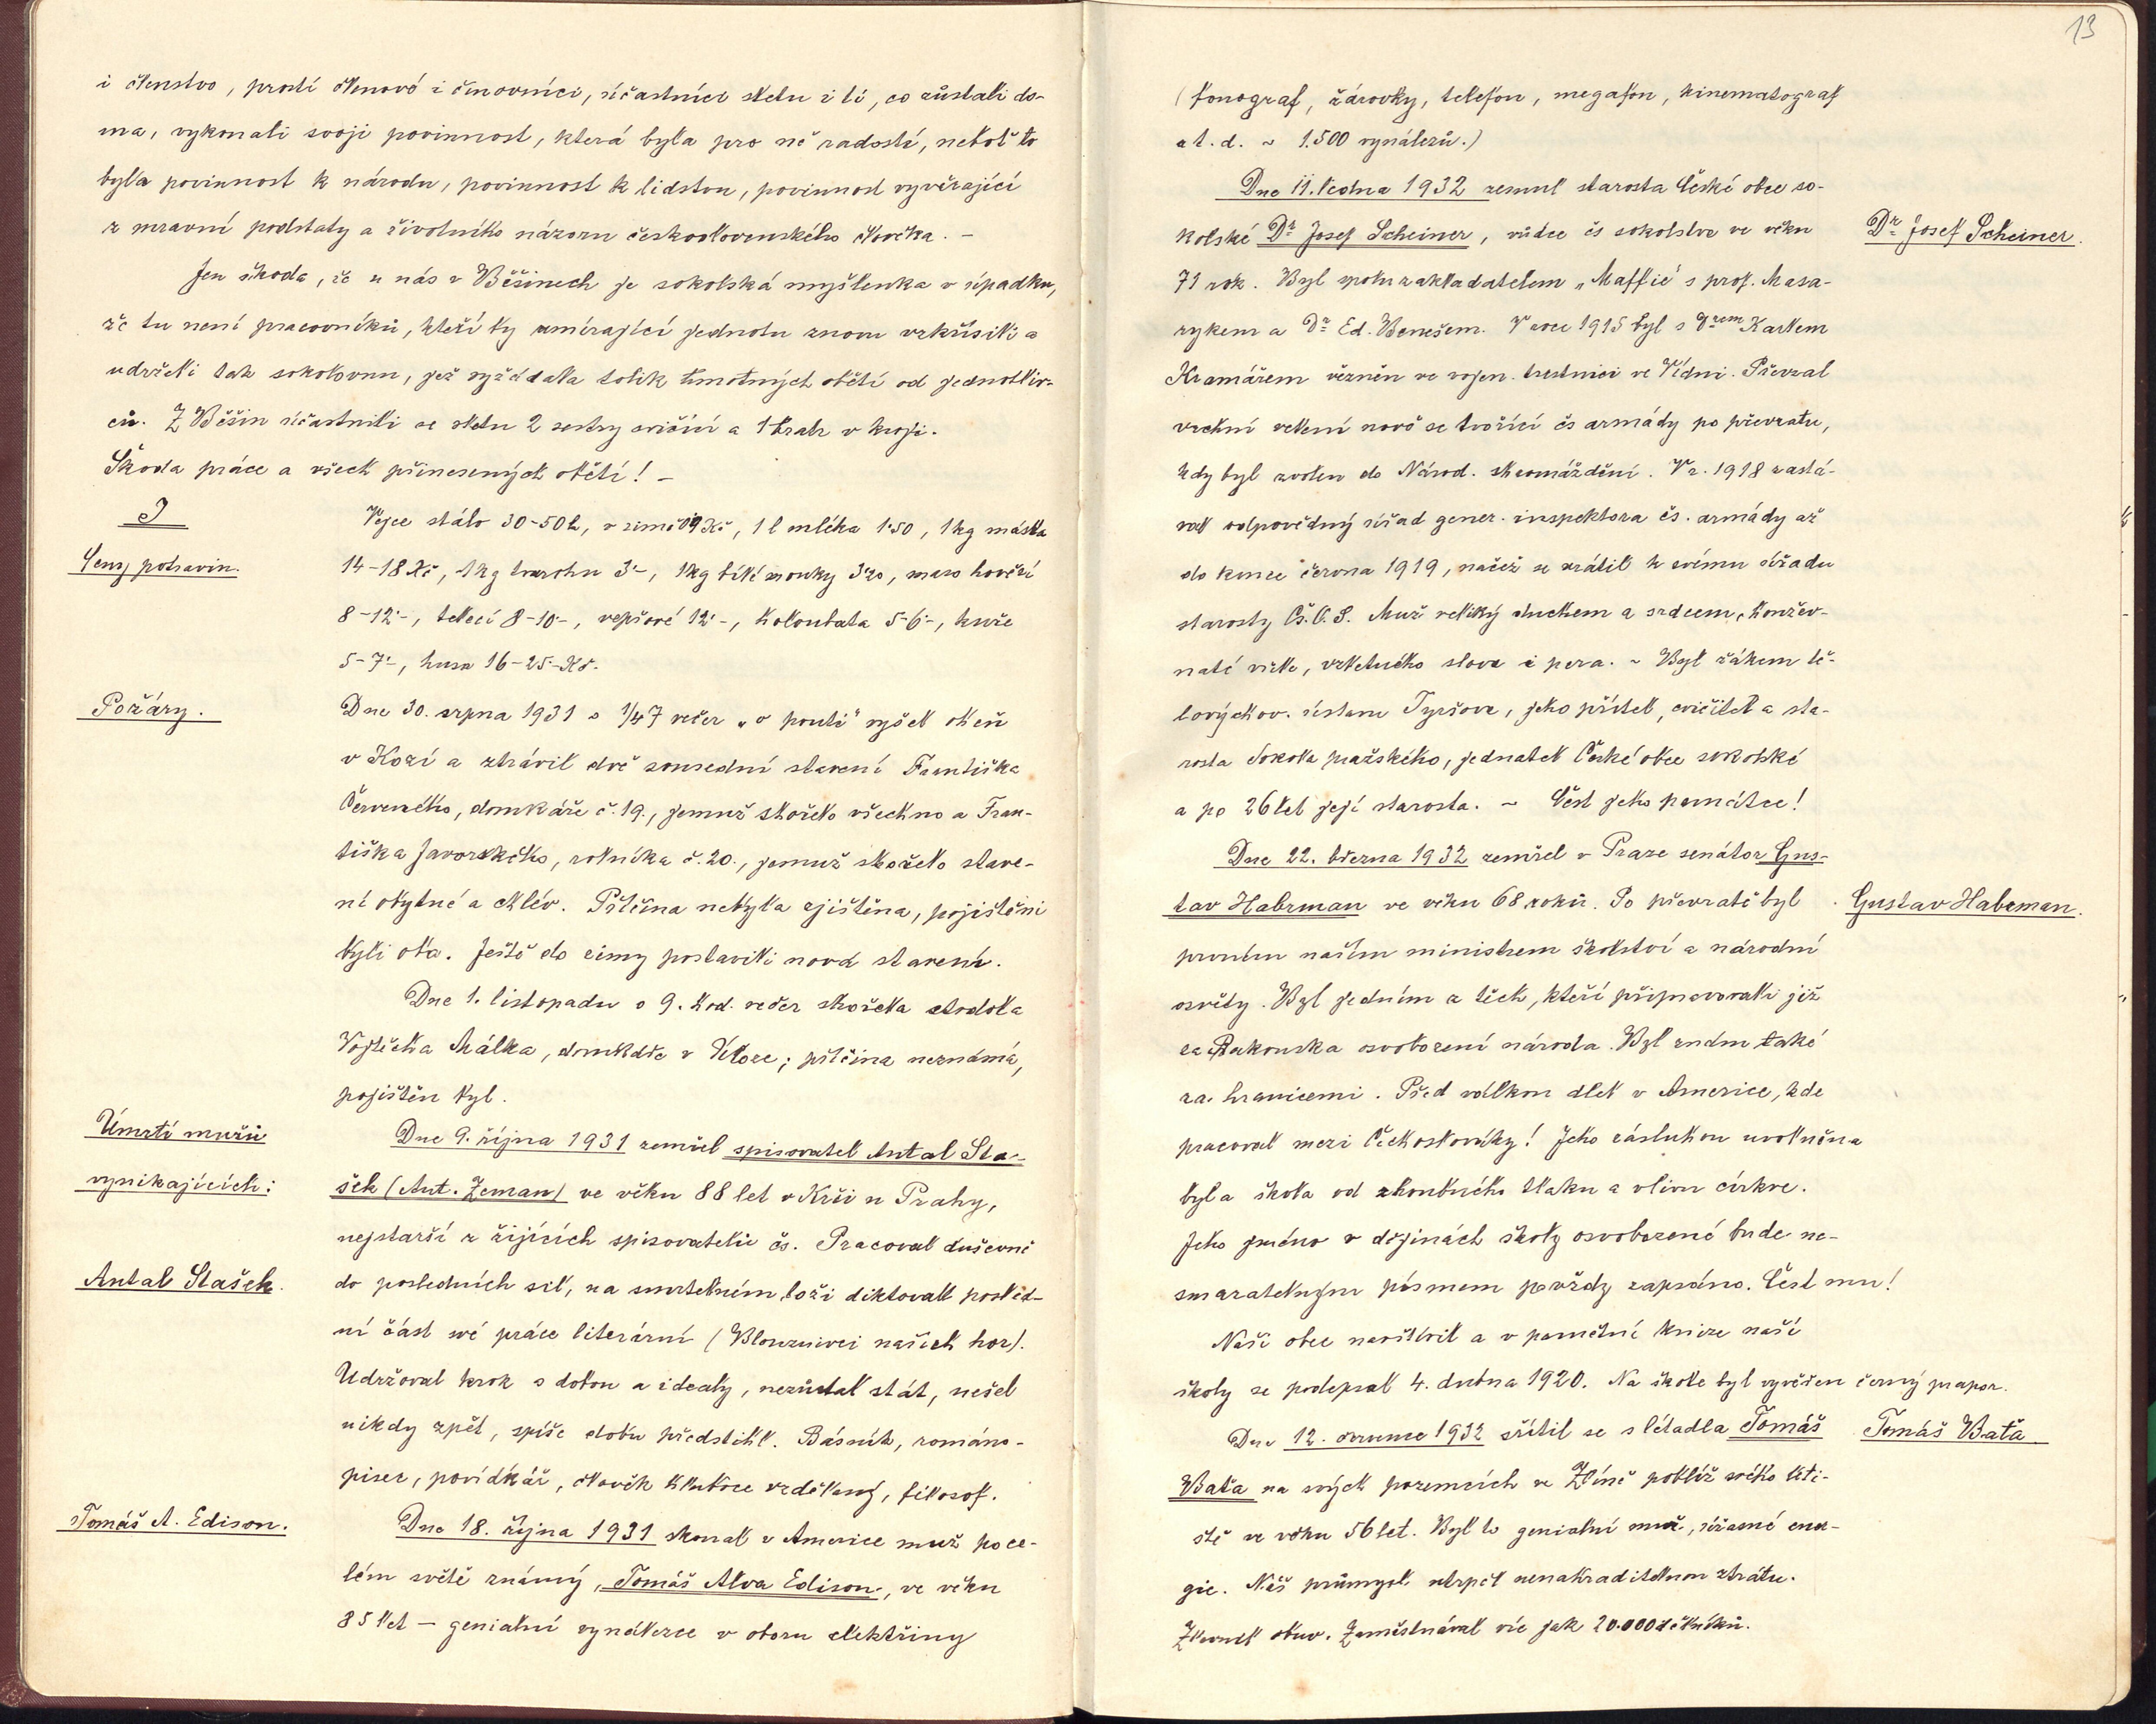 i členstvo, prostí členové i činovníci, účastníci sletu i ti, co zůstali do-
ma, vykonali svoji povinnost, která byla pro ně radostí, neboť to
byla povinnost k národu, povinnost k lidstvu, povinnost vyvěrající
z mravní podstaty a životního názoru československého člověka. -
Jen škoda, že u nás v Běšinech je sokolská myšlenka v úpadku,
že tu není pracovníků, kteří by umírající jednotu znovu vzkřísili a
udrželi tak sokolovnu, jež vyžádala tolik hmotných obětí od jednotliv-
ců. Z Běšin súčastnili se sletu 2 sestry cvičící a 1 bratr v kroji.
Škoda práce a všech přinesených obětí! -
Ceny potravin.
Vejce stálo 30-50 h, v zimě 0·9 Kč, 1 l mléka 1·50, 1 kg másla
14-18 Kč, 1 kg tvarohu 3·-, 1 kg bílé mouky 3·20, maso hovězí
8-12·-, telecí 8-10·-, vepřové 12·-, holoubata 5-6·-, kuře
5-7·-, husa 16-25·- Kč.
Požáry.
Dne 30. srpna 1931 o 1/4 7 večer „o pouti" vyšel oheň
v Kozí a ztrávil dvě sousední stavení Františka
Červeného, domkáře č. 19., jemuž shořelo všechno a Fran-
tiška Javorského, rolníka č. 20., jemuž shořelo stave-
ní obytné a chlév. Příčina nebyla zjištěna, pojištěni
byli oba. Ještě do zimy postavili nová stavení.
Dne 1. listopadu o 9. hod. večer shořela stodola
Vojtěcha Málka, domkáře v Úloze; příčina neznámá,
pojištěn byl.
Úmrtí mužů
vynikajících:
Dne 9. října 1931 zemřel spisovatel Antal Sta-
šek (Ant. Zeman) ve věku 88 let v Krči u Prahy,
nejstarší z žijících spisovatelů čs. Pracoval duševně
Antal Stašek.
do posledních sil, na smrtelném loži diktoval posled-
ní část své práce literární (Blouznivci našich hor).
Udržoval krok s dobou a ideály, nezůstal stát, nešel
nikdy zpět, spíše dobu předstihl. Básník, románo-
pisec, povídkář, člověk hluboce vzdělaný, filosof.
Tomáš A. Edison.
Dne 18. října 1931 skonal v Americe muž po ce-
lém světě známý, Tomáš Alva Edison, ve věku
85 let - genialní vynálezce v oboru elektřiny
13
(fonograf, žárovky, telefon, megafon, kinematograf
a t. d. ~ 1.500 vynálezů.)
Dne 11. ledna 1932 zesnul starosta České obce so-
kolské Dr Josef Scheiner, vůdce čs sokolstva ve věku
Dr Josef Scheiner.
71 rok. Byl spoluzakladatelem „Maffie" s prof. Masa-
rykem a Dr Ed. Benešem. V roce 1915 byl s Drem Karlem
Kramářem vězněn ve vojen. trestnici ve Vídni. Převzal
vrchní velení nově se tvořící čs armády po převratu,
kdy byl zvolen do Národ. shromáždění. V r. 1918 zastá-
val odpovědný úřad gener. inspektora čs. armády až
do konce června 1919, načež se vrátil k svému úřadu
starosty Čs. O. S. Muž veliký duchem a srdcem, houžev-
naté vůle, vzletného slova i pera. ~ Byl žákem tě-
locvičov. ústavu Tyršova, jeho přítel, cvičitel a sta-
rosta Sokola pražského, jednatel České obce sokolské
a po 26 let její starosta. ~ Čest jeho památce!
Dne 22. března 1932 zemřel v Praze senátor Gus-
tav Habrman ve věku 68 roků. Po převratě byl
Gustav Habrman.
prvním naším ministrem školství a národní
osvěty. Byl jedním z těch, kteří připravovali již
za Rakouska osvobození národa. Byl znám také
za hranicemi. Před válkou dlel v Americe, kde
pracoval mezi Čechoslováky! Jeho zásluhou uvolněna
byla škola od zhoubného tlaku a vlivu církve.
Jeho jméno v dějinách školy osvobozené bude ne-
smazatelným písmem povždy zapsáno. Čest mu!
Naši obec navštívil a v pamětní knize naší
školy se podepsal 4. dubna 1920. Na škole byl vyvěšen černý prapor.
Dne 12. července 1932 zřítil se s létadla Tomáš
Tomáš Baťa
Baťa na svých pozemcích ve Zlíně poblíž svého leti-
ště ve věku 56 let. Byl to genialní muž, úžasné ener-
gie. Náš průmysl utrpěl nenahraditelnou ztrátu.
Zlevnil obuv. Zaměstnával víc jak 20.000 dělníků.